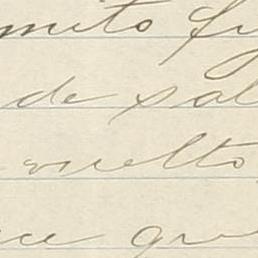 mito fu
de sal
vuelto,
ce que